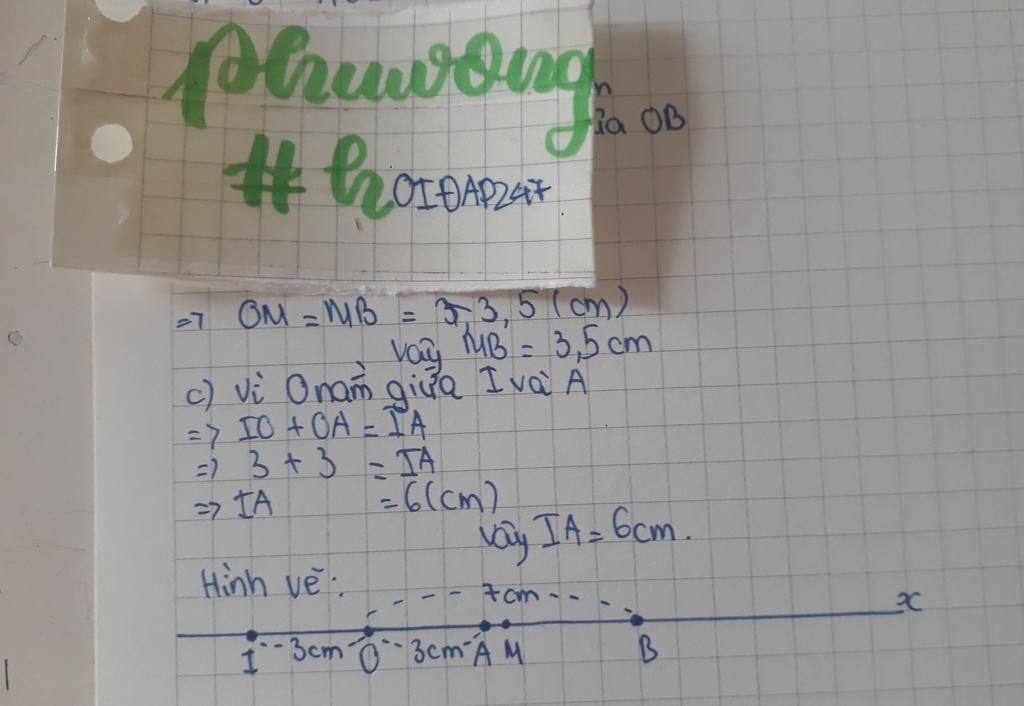 Phuwong
# hOIĐAP247
n
ủa OB
=> OM = MB = 3,5 (cm)
vậy MB = 3,5cm
c) Vì O nằm giữa I và A
=> IO + OA = IA
=> 3 + 3 = IA
=> IA = 6(cm)
Vậy IA = 6cm.
Hình vẽ:
7cm
x
I 3cm O 3cm A M B